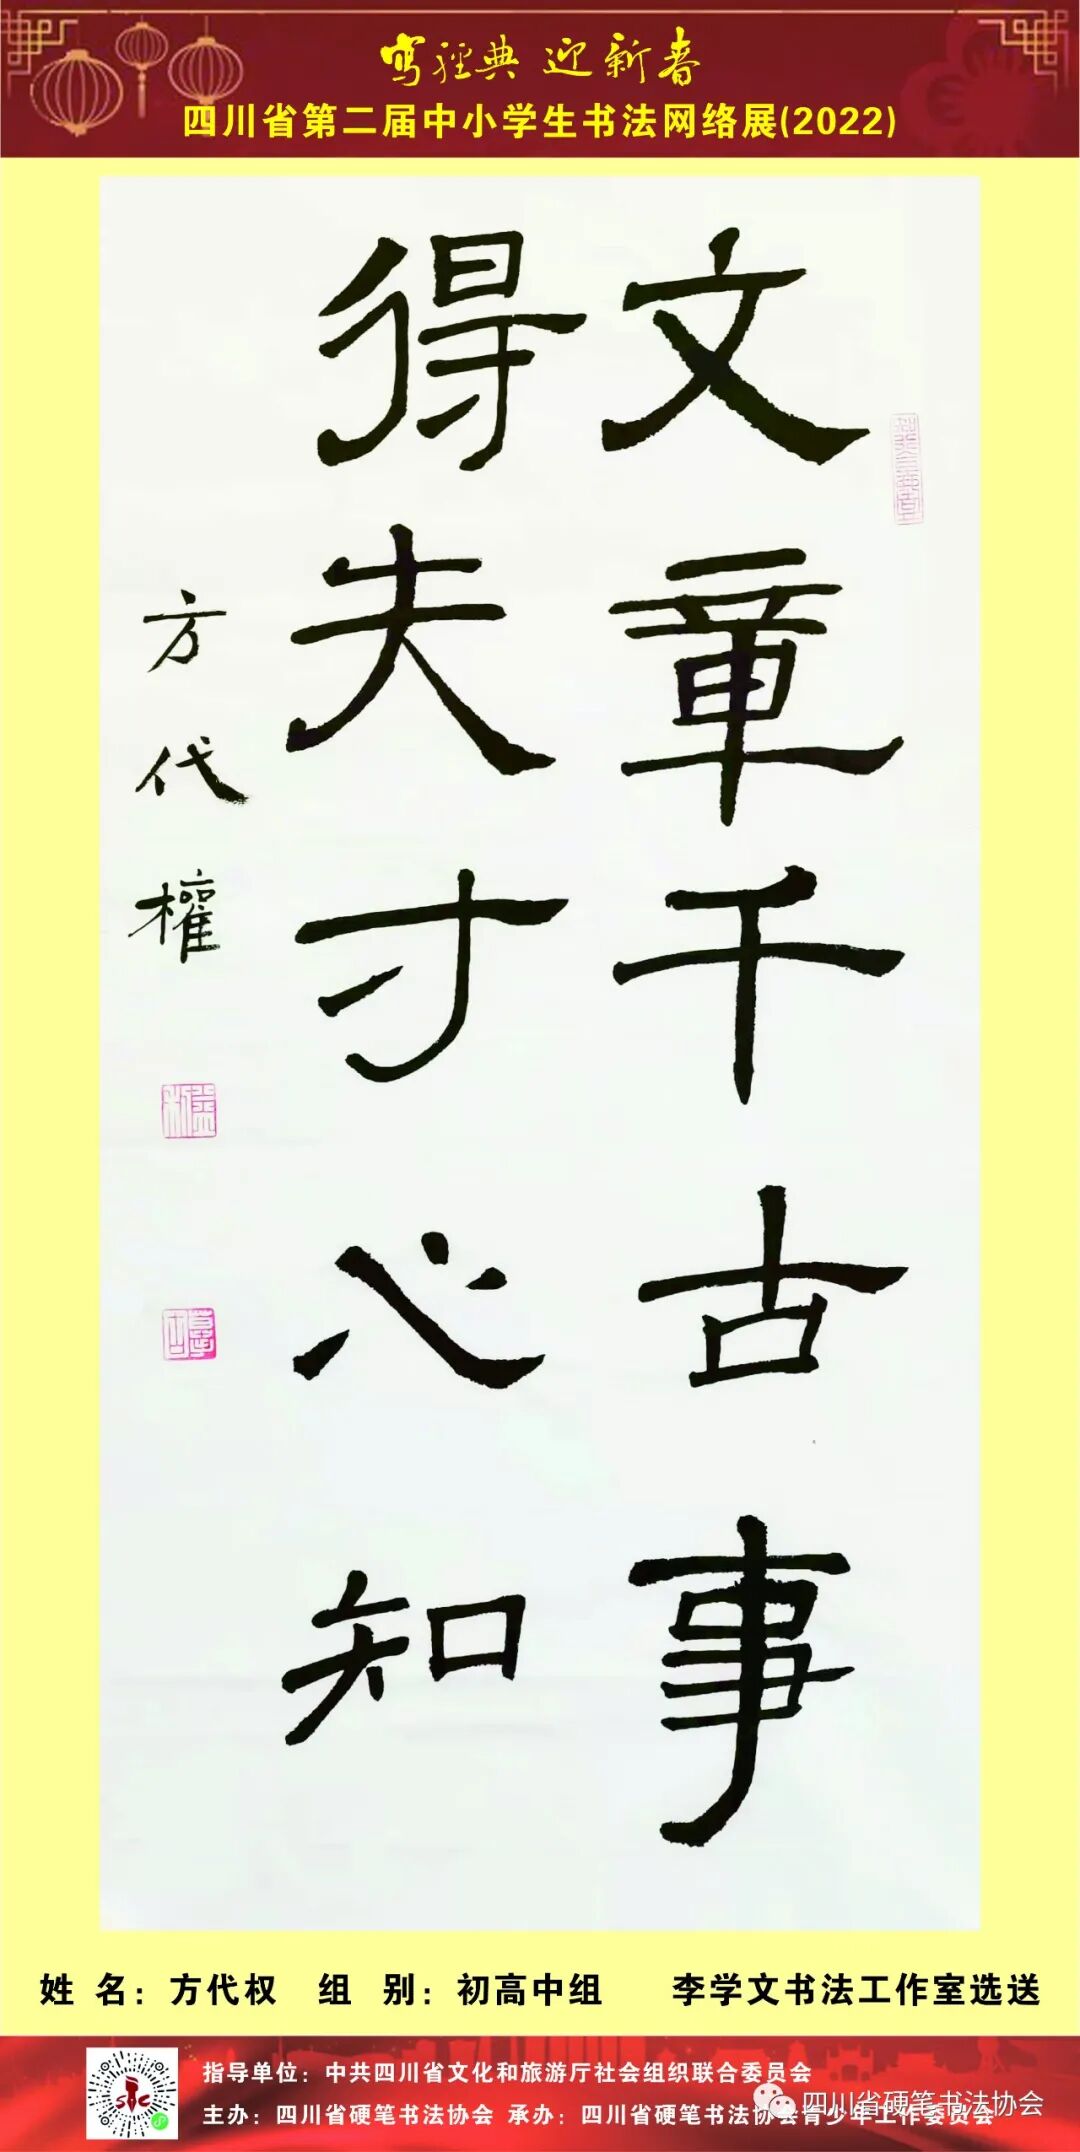 写经典 迎新春
四川省第二届中小学生书法网络展(2022)
文章千古事
得失寸心知
方代權
姓 名：方代权 组 别：初高中组 李学文书法工作室选送
指导单位：中共四川省文化和旅游厅社会组织联合委员会
主办：四川省硬笔书法协会 承办：四川省硬笔书法协会青少年工作委员会
四川省硬笔书法协会